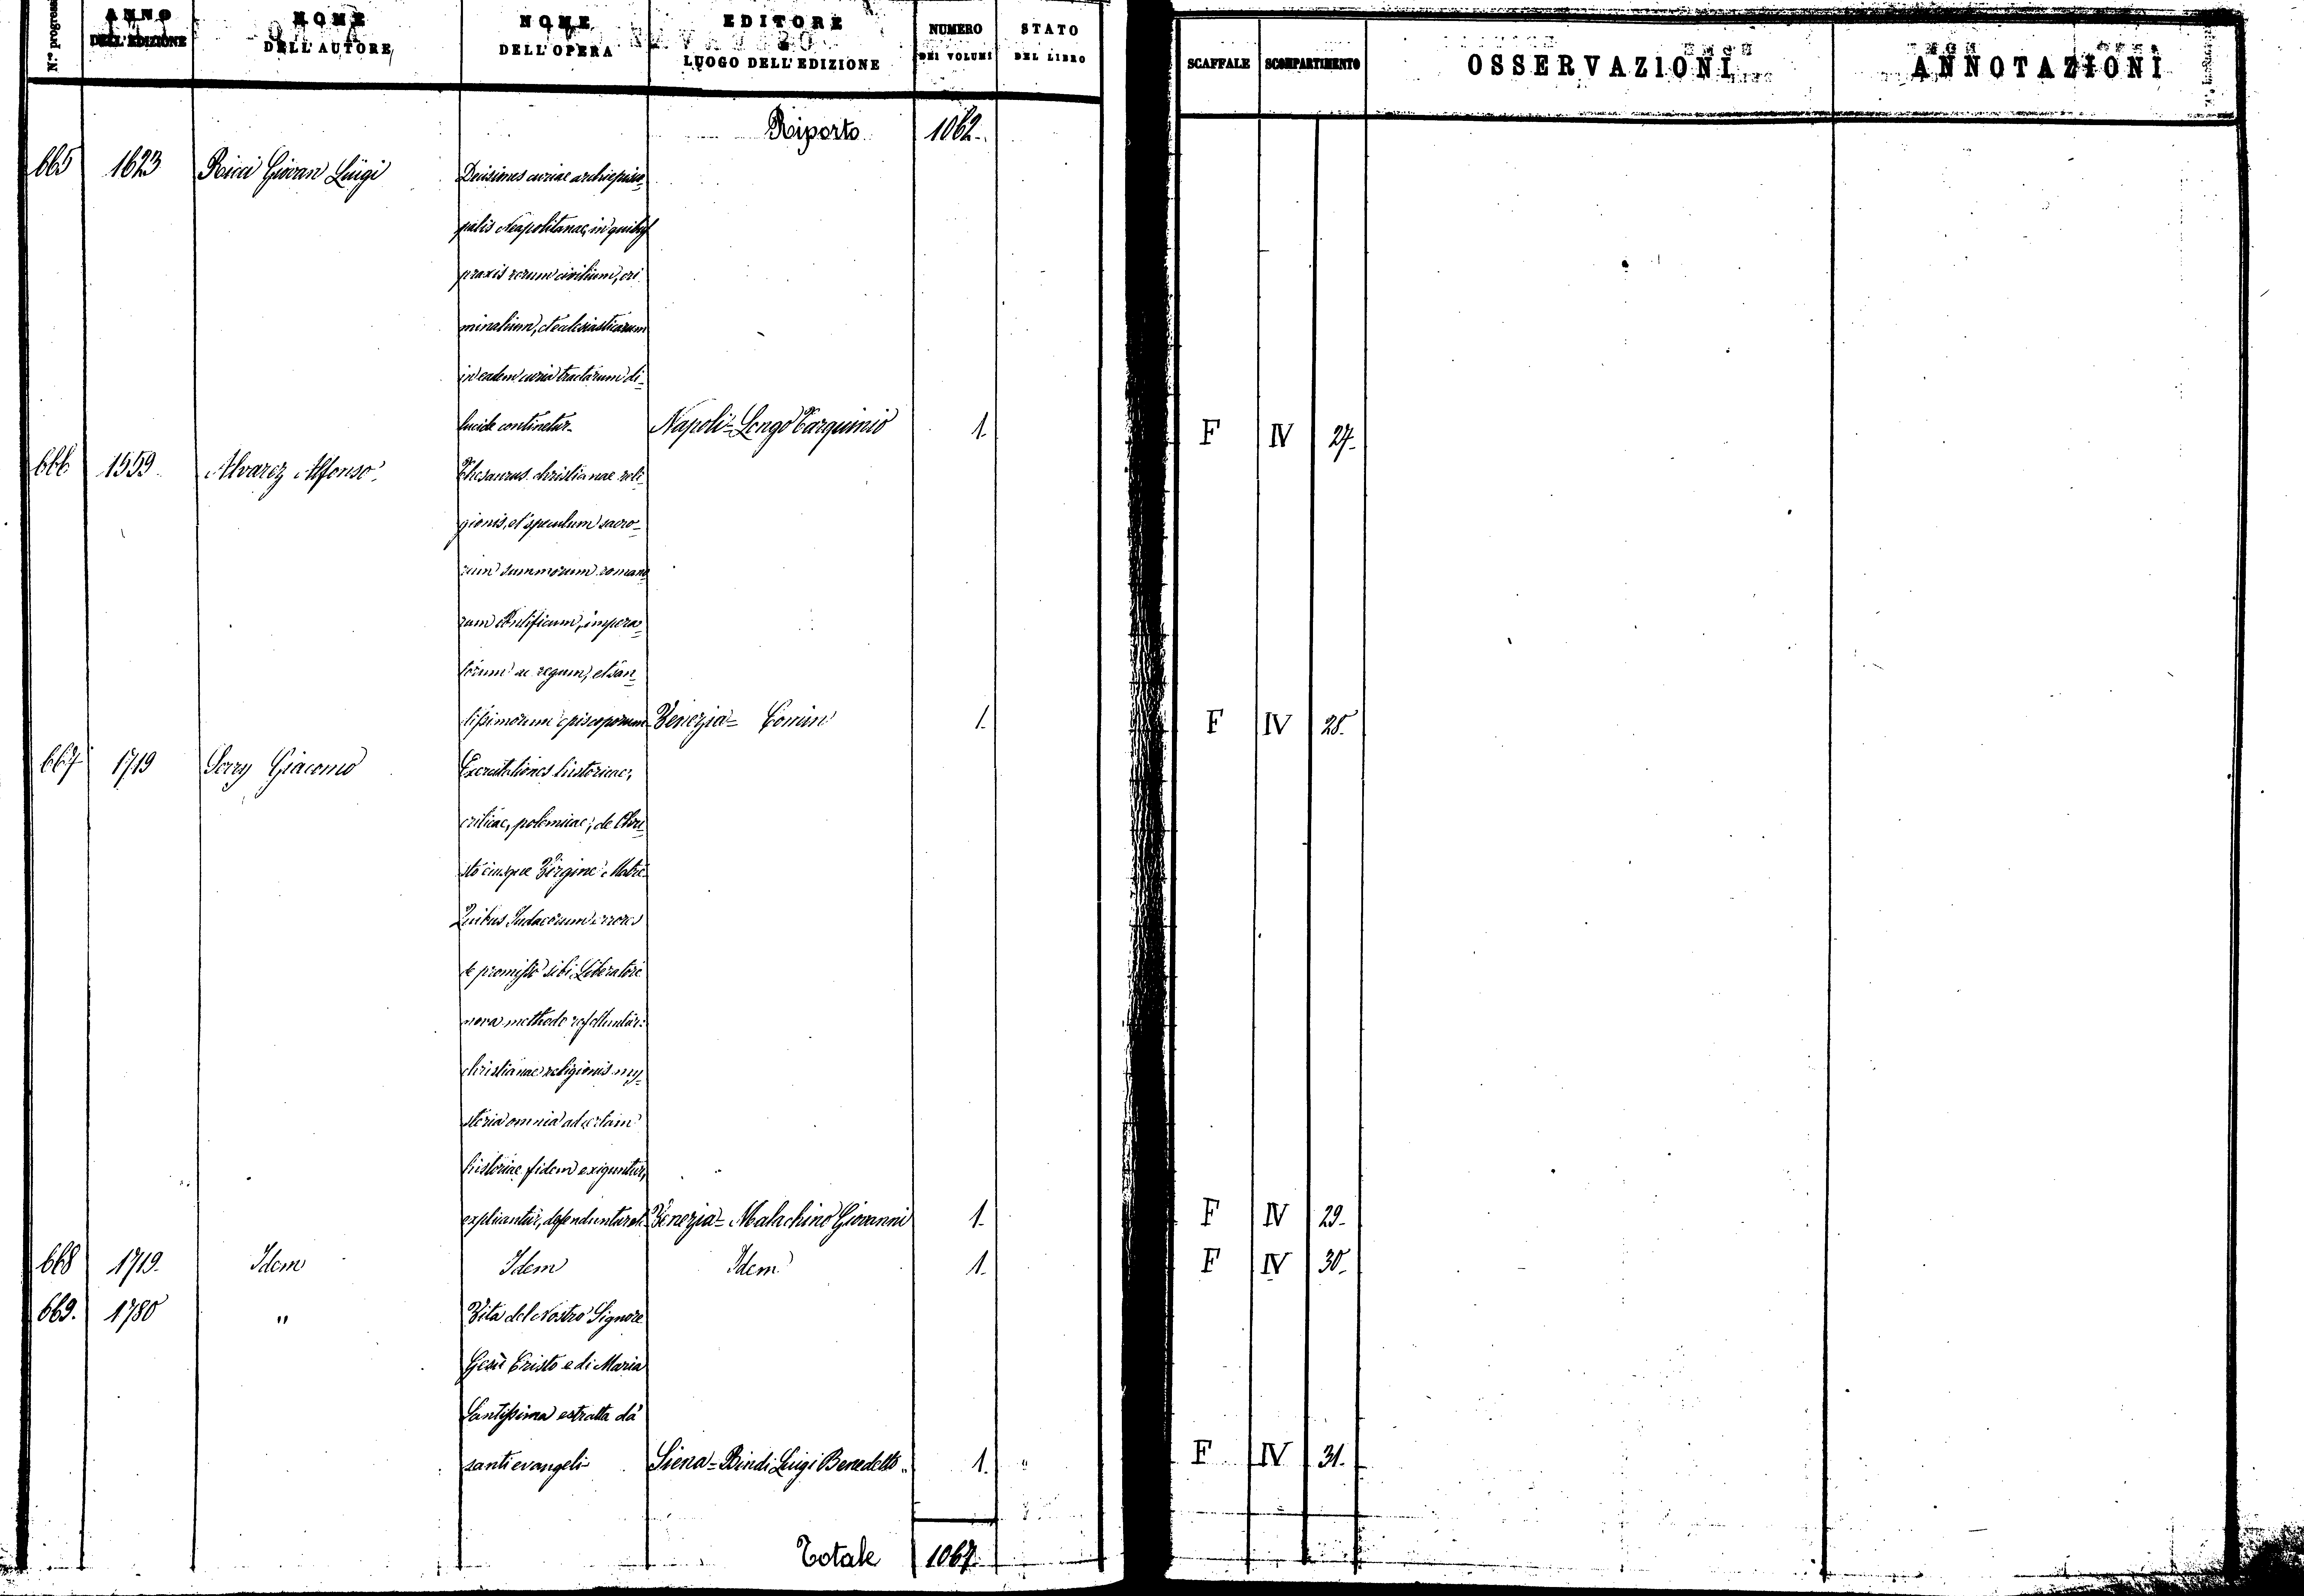 N.° progress
ANNO
DELL'EDIZIONE
NOME
DELL'AUTORE
NOME
DELL'OPERA
EDITORE
E
LUOGO DELL'EDIZIONE
NUMERO
DEI VOLUMI
STATO
DEL LIBRO
SCAFFALE
SCOMPARTIMENTO
OSSERVAZIONI
ANNOTAZIONI
Riporto 1062.
665 1623 Ricci Giovan Luigi Decisiones curiae archiepisco-
palis Neapolitanae, in quibus
praxis rerum civilium, cri
minalium, et ecclesiasticarum
in eadem curia tractarum di-
lucide continetur- Napoli- Longo Tarquinio 1. F IV 27.
666 1559. Alvarez Alfonso. Thesaurus christianae reli-
gionis, et speculum sacro-
rum summorum romano
rum Pontificum, impera-
torum ac regum, et san-
tissimorum episcoporum- Venezia- Comin 1. F IV 28.
667 1719 Serry Giacomo Exercitationes historicae,
criticae, polemicae, de Chri-
sto eiusque Virgine Matre
Quibus Judaeorum errores
de promisso sibi Liberatore
nova methodo refelluntur:
christianae religionis my-
steria omnia ad certam
historiae fidem exiguntur,
explicantur, defenduntur et Venezia- Malachino Giovanni 1. F IV 29.
668 1719. Idem Idem Idem 1. F IV 30.
669. 1780 " Vita del Nostro Signore
Gesù Cristo e di Maria
Santissima estratta da'
santi evangeli- Siena- Bindi Luigi Benedetto. 1. " F IV 31.
Totale 1067.